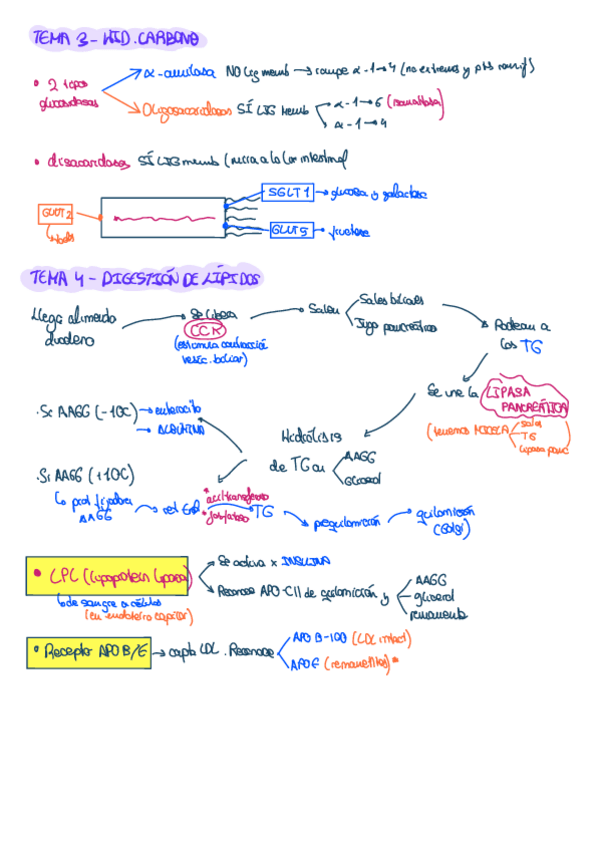 TEMA 3 - HID. CARBONO
• 2 tipos glucosidasas
α-amilasa NO lig memb → rompe α-1→4 (no extremos y pts ramif)
Oligosacaridasas SÍ LIG Memb
α-1→6 (isomaltasa)
α-1→4
• disacaridasas SÍ LIG memb (hacia a la luz intestinal
SGLT1 → glucosa y galactosa
GLUT2
todos
GLUT5 → fructosa
TEMA 4 - DIGESTIÓN DE LÍPIDOS
Llega alimento duodeno
Se libera
CCK
(estimula contracción vesic. biliar)
Salen
Sales biliares
Jugo pancreático
Rodean a los TG
Se une la LIPASA PANCREÁTICA
(tenemos MICELA
sales
TG
lipasa panc)
Hidrólisis de TG en
AAGG
Glicerol
• Si AAGG (-10C) → enterocito
→ ALBÚMINA
• Si AAGG (+10C)
prot fijadora AAGG
→ ret End
* aciltransferasa
• fosfatasa
TG
prequilomicrón
quilomicrón (Golgi)
• LPL (lipoprotein lipasa)
de sangre a células
(en endotelio capilar)
Se activa x INSULINA
Reconoce APO-CII de quilomicrón y
AAGG
glicerol
remanente
• Receptor APO B/E → capta LDL. Reconoce
APO B-100 (LDL intact)
APO E (remanentes) •